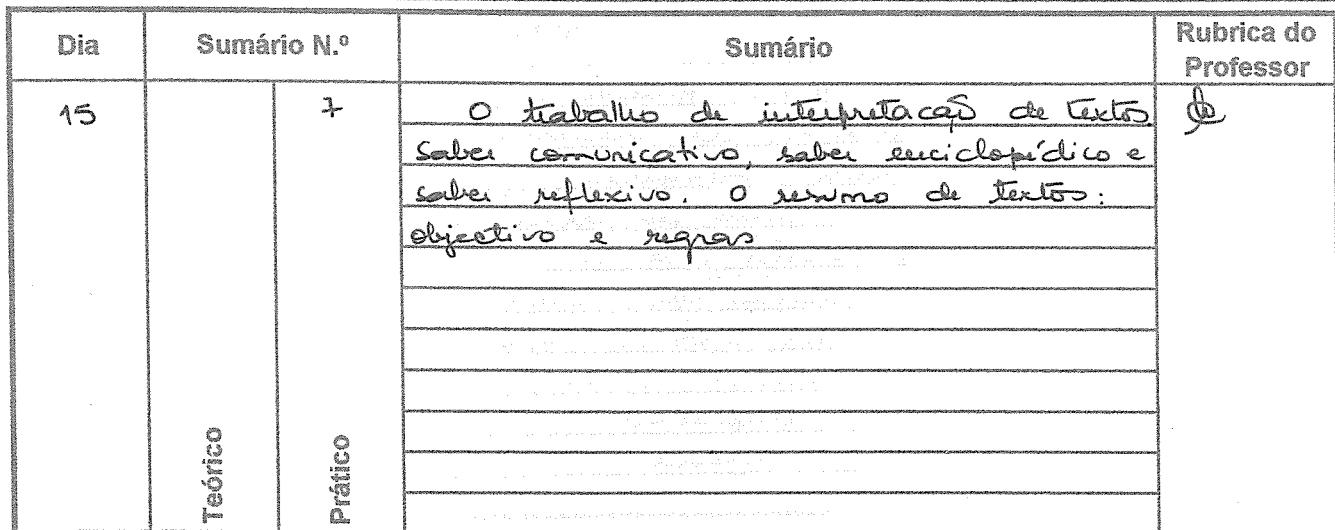 Dia Sumário N.º Sumário Rubrica do Professor
15 7 O trabalho de interpretação de textos
saber comunicativo, saber enciclopédico e
saber reflexivo. O resumo de textos:
objectivo e regras
Teórico Prático